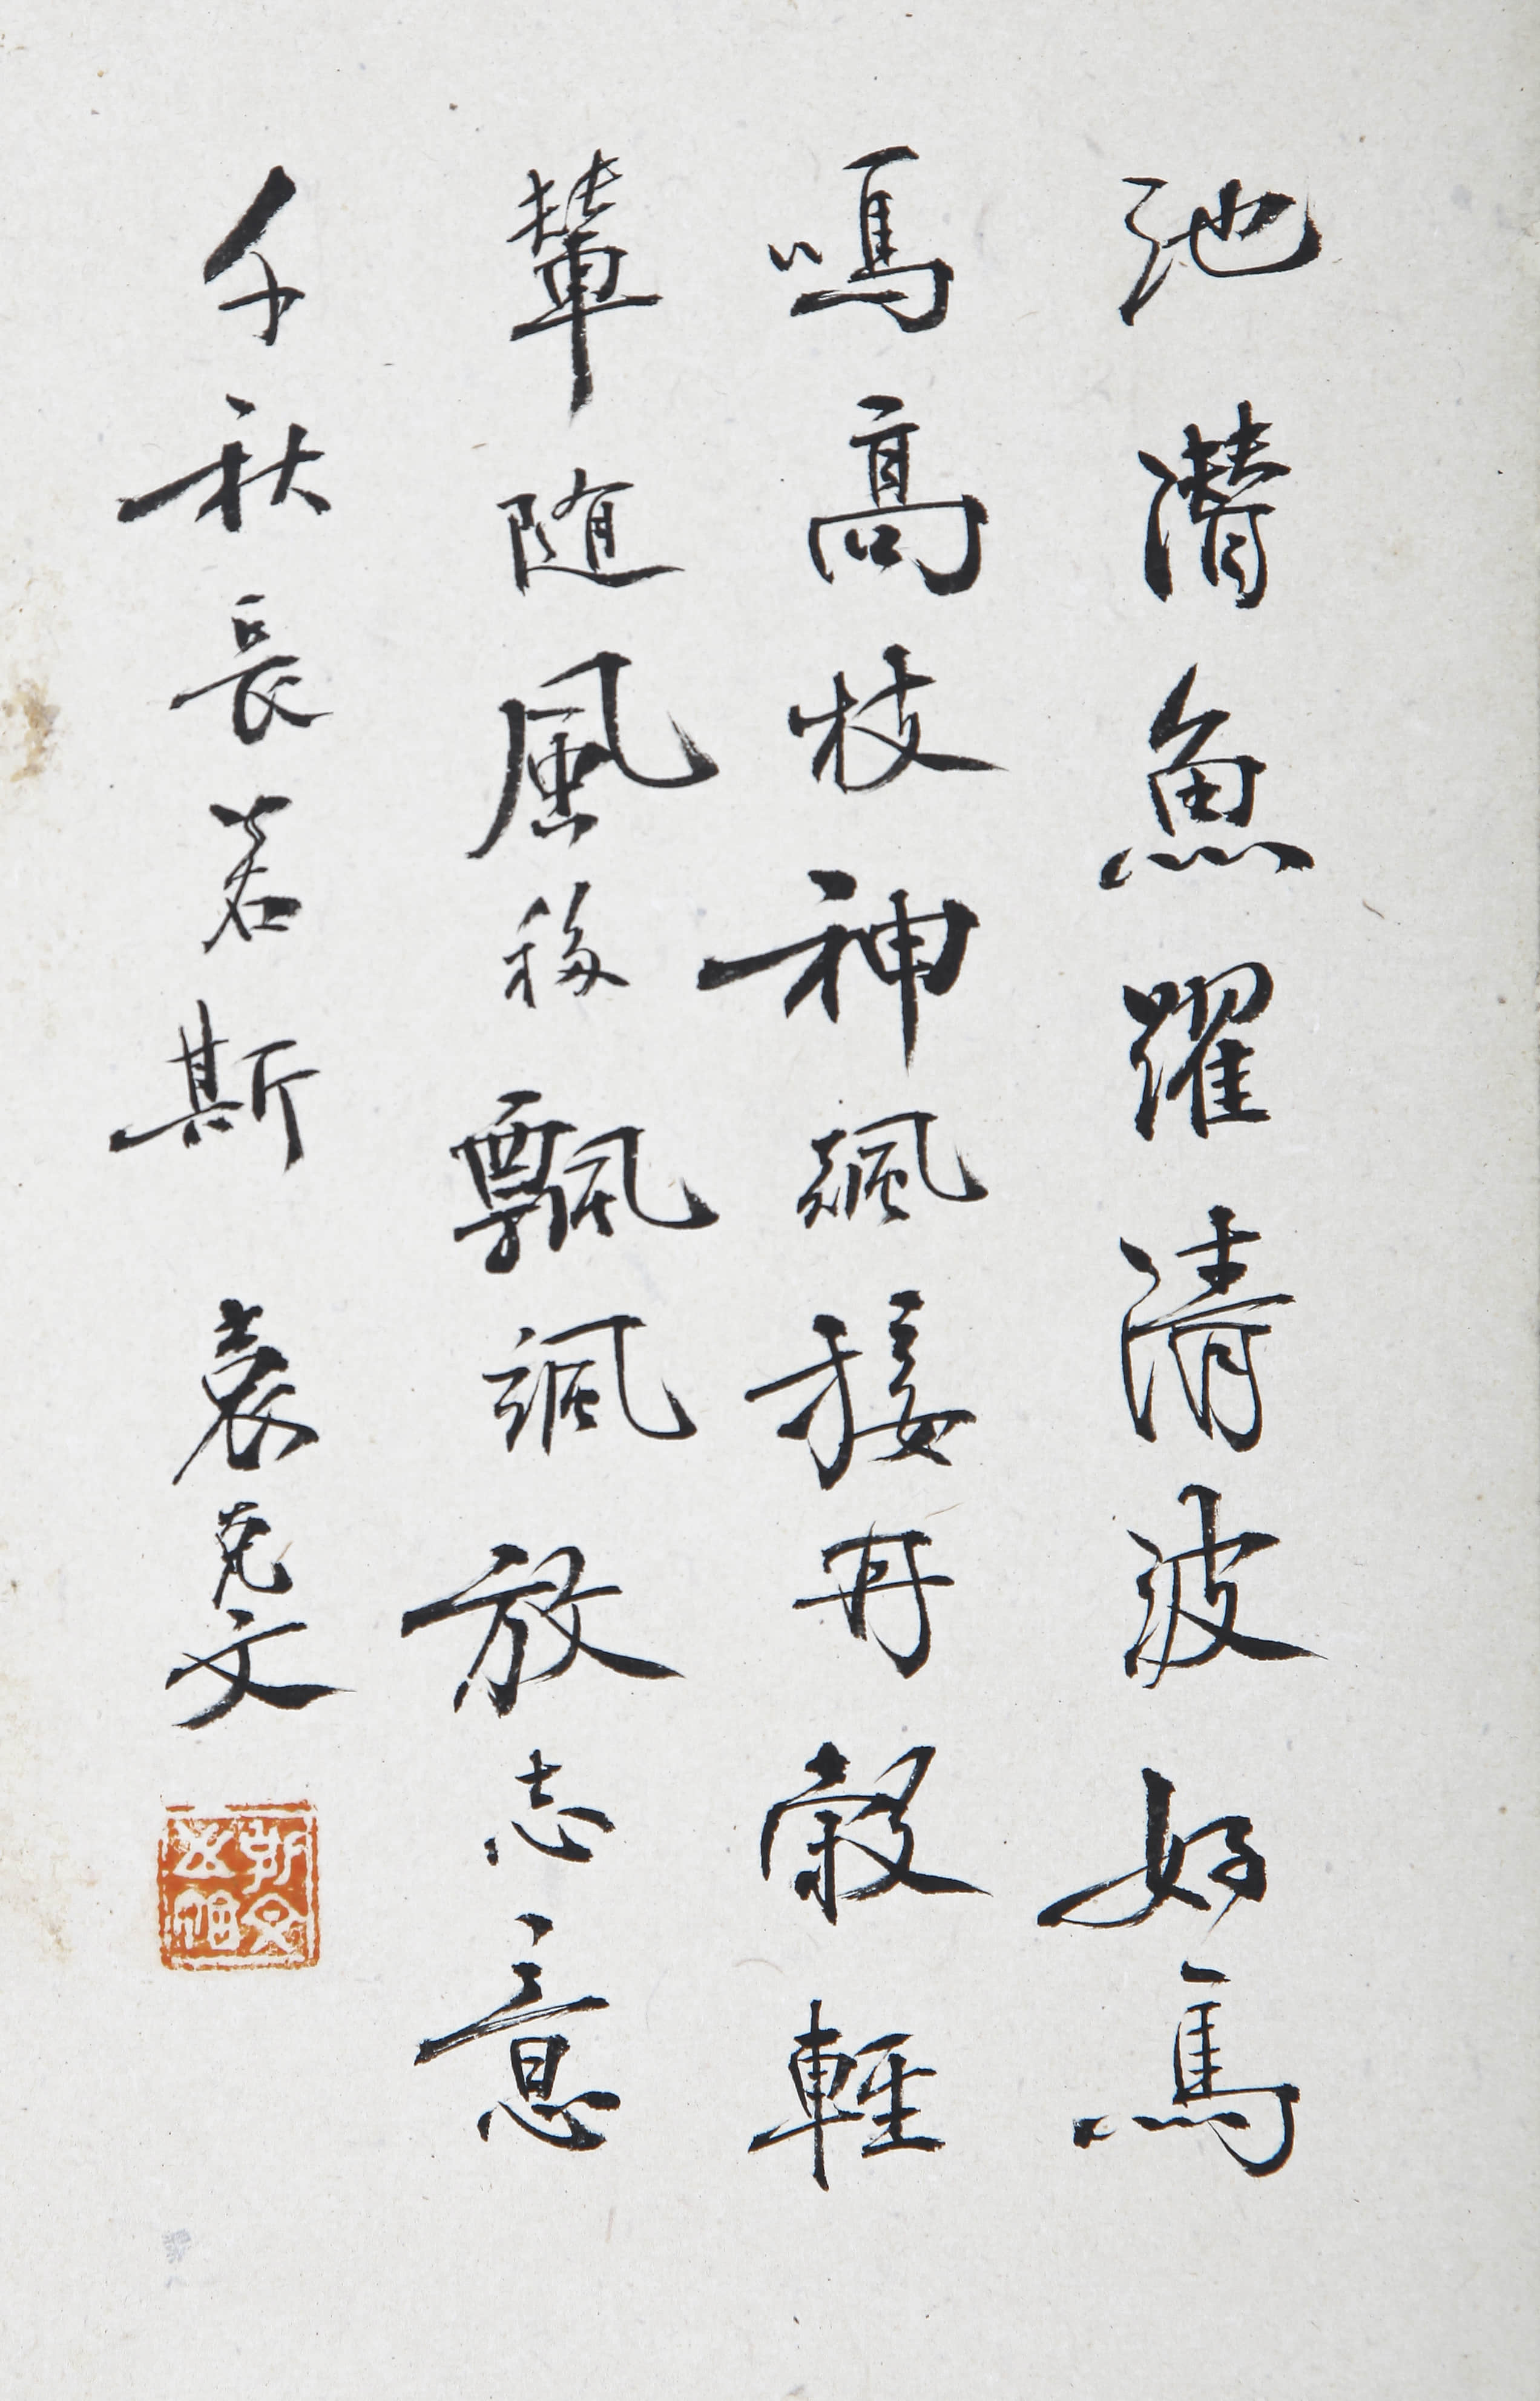 池潛魚躍清波好鳥
鳴高枝神飆接丹轂輕
輦随風移飄颻放志意
千秋長若斯 袁克文